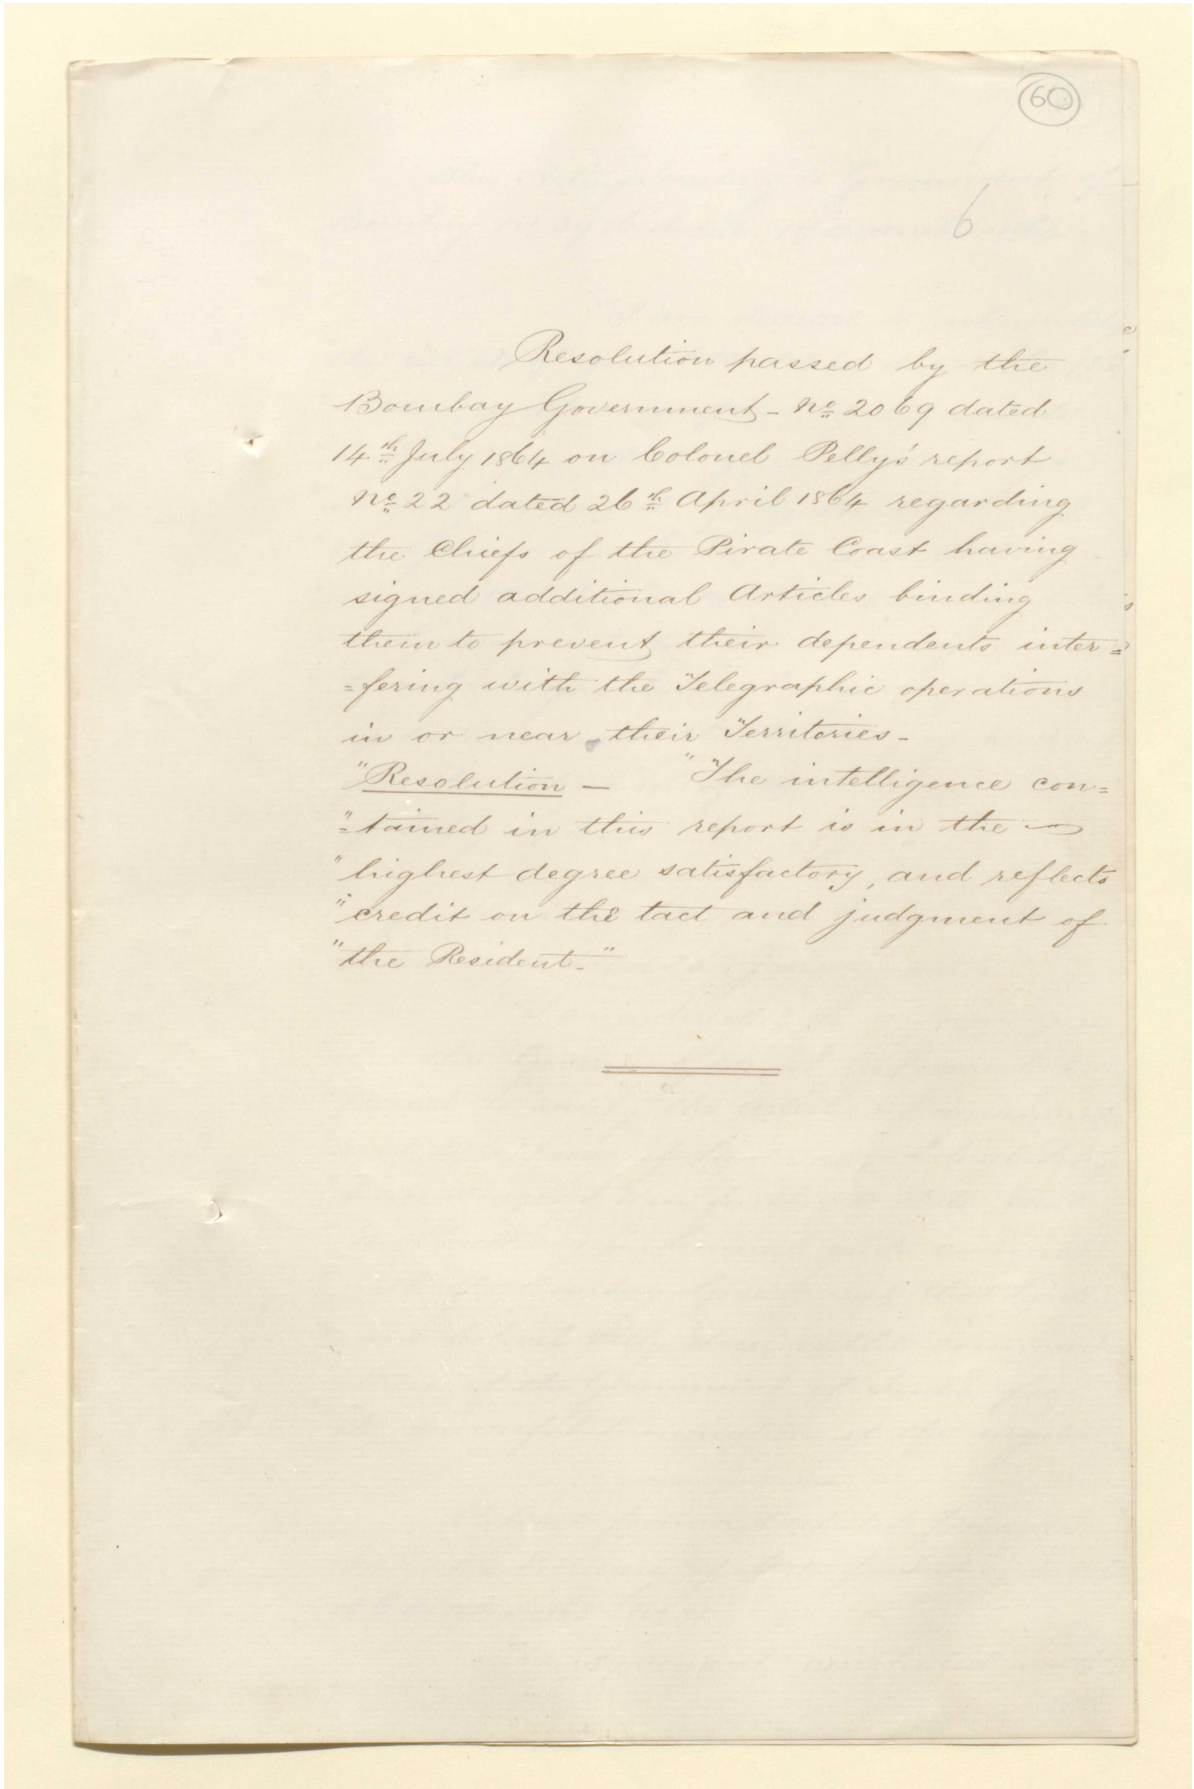 60
6
Resolution passed by the
Bombay Government - No 2069 dated
14th July 1864 on Colonel Pelly's report
No 22 dated 26th April 1864 regarding
the Chiefs of the Pirate Coast having
signed additional Articles binding
them to prevent their dependents inter=
=fering with the Telegraphic operations
in or near their Territories -
"Resolution - "The intelligence con=
"=tained in this report is in the
"highest degree satisfactory, and reflects
"credit on the tact and judgment of
"the Resident."